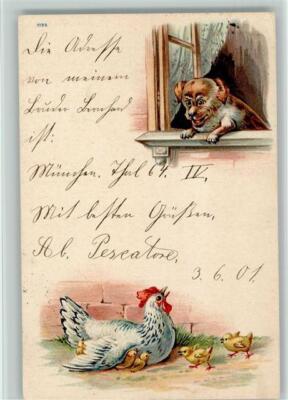 Die Adresse
von meinem
Bruder Bernhard
ist:
München. Thal 64. IV,
Mit besten Grüßen,
Ab. Pescatore,
3. 6. 01.